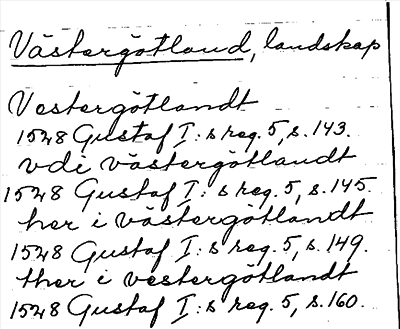 Västergötland, landskap
Vestergötlandt
1528 Gustaf I:s reg. 5, s. 143.
vdi västergötlandt
1528 Gustaf I:s reg. 5, s. 145.
her i västergötlandt
1528 Gustaf I:s reg. 5, s. 149.
ther i vestergötlandt
1528 Gustaf I:s reg. 5, s. 160.